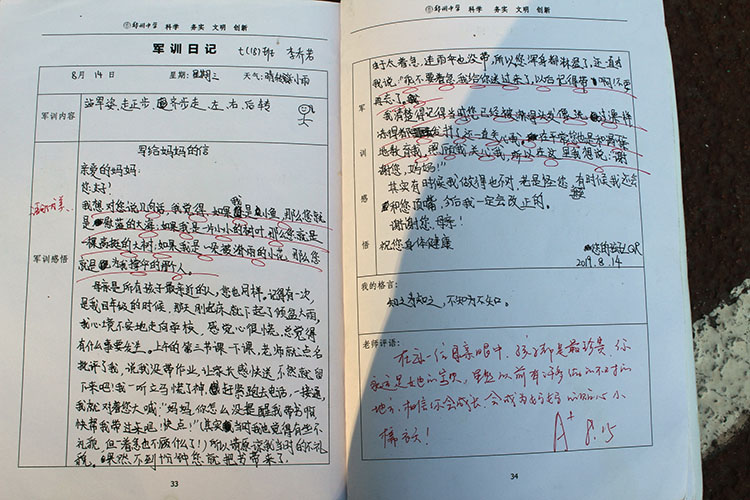 郑州中学 科学 务实 文明 创新
军训日记 七(18)班 李乔若
8月14日 星期:星期三 天气:晴转小雨
军训内容
站军姿、走正步、齐步走、左、右、后转
写给妈妈的信
亲爱的妈妈:
您好!
我想对您说几句话,我觉得,如果我是小鱼,那么您就
是蔚蓝的大海;如果我是一片小小的树叶,那么您就是
一棵高挺的大树;如果我是一朵被滂雨的小花,那么您
就是为我撑伞的那个人。
军训感悟
母亲是所有孩子最亲近的人,您也同样。记得有一次,
是我四年级的时候,那天刚起床,就下起了倾盆大雨,
我心境不安地走向学校,感觉心很慌,总觉得
有什么事要发生。上午的第三节课一下课,老师就点名
批评了我,说我没带作业,让家长感快送,不然就留
下来吧!我一听立马慌了神,赶紧跑去电话,一接通,
我就对着您大喊:“妈妈,你怎么没提醒我带书啊,
快帮我带过来吧,快点!”(其实当时我也觉得有些不
礼貌,但一着急也不顾什么了!)所以请原谅我当时的不礼
貌。果然,不到十分钟您就把书带来了。
33
郑州中学 科学 务实 文明 创新
由于太着急,连雨伞也没带,所以您浑身都淋湿了,还一直对
我说:“孩子不要着急我给你送过来了,以后记得带啊!不要
再忘了。”
我清楚得记得当时您已经被淋得头发很
谢您,妈妈!”
其实有时候我做得也不对,老是怪您,有时候我还会
和您顶嘴,今后我一定会改正的。
谢谢您,母亲!
祝您身体健康
LQR
2019.8.14
军训感悟
我的格言:
知之为知之,不知为不知。
老师评语:
在每一位母亲眼中,孩子都是最珍贵,你
就是她的宝贝,虽然以前有许多做的不对的
地方,相信你会成长,会成为妈妈的贴心小
棉袄!
A+ 8.15
34